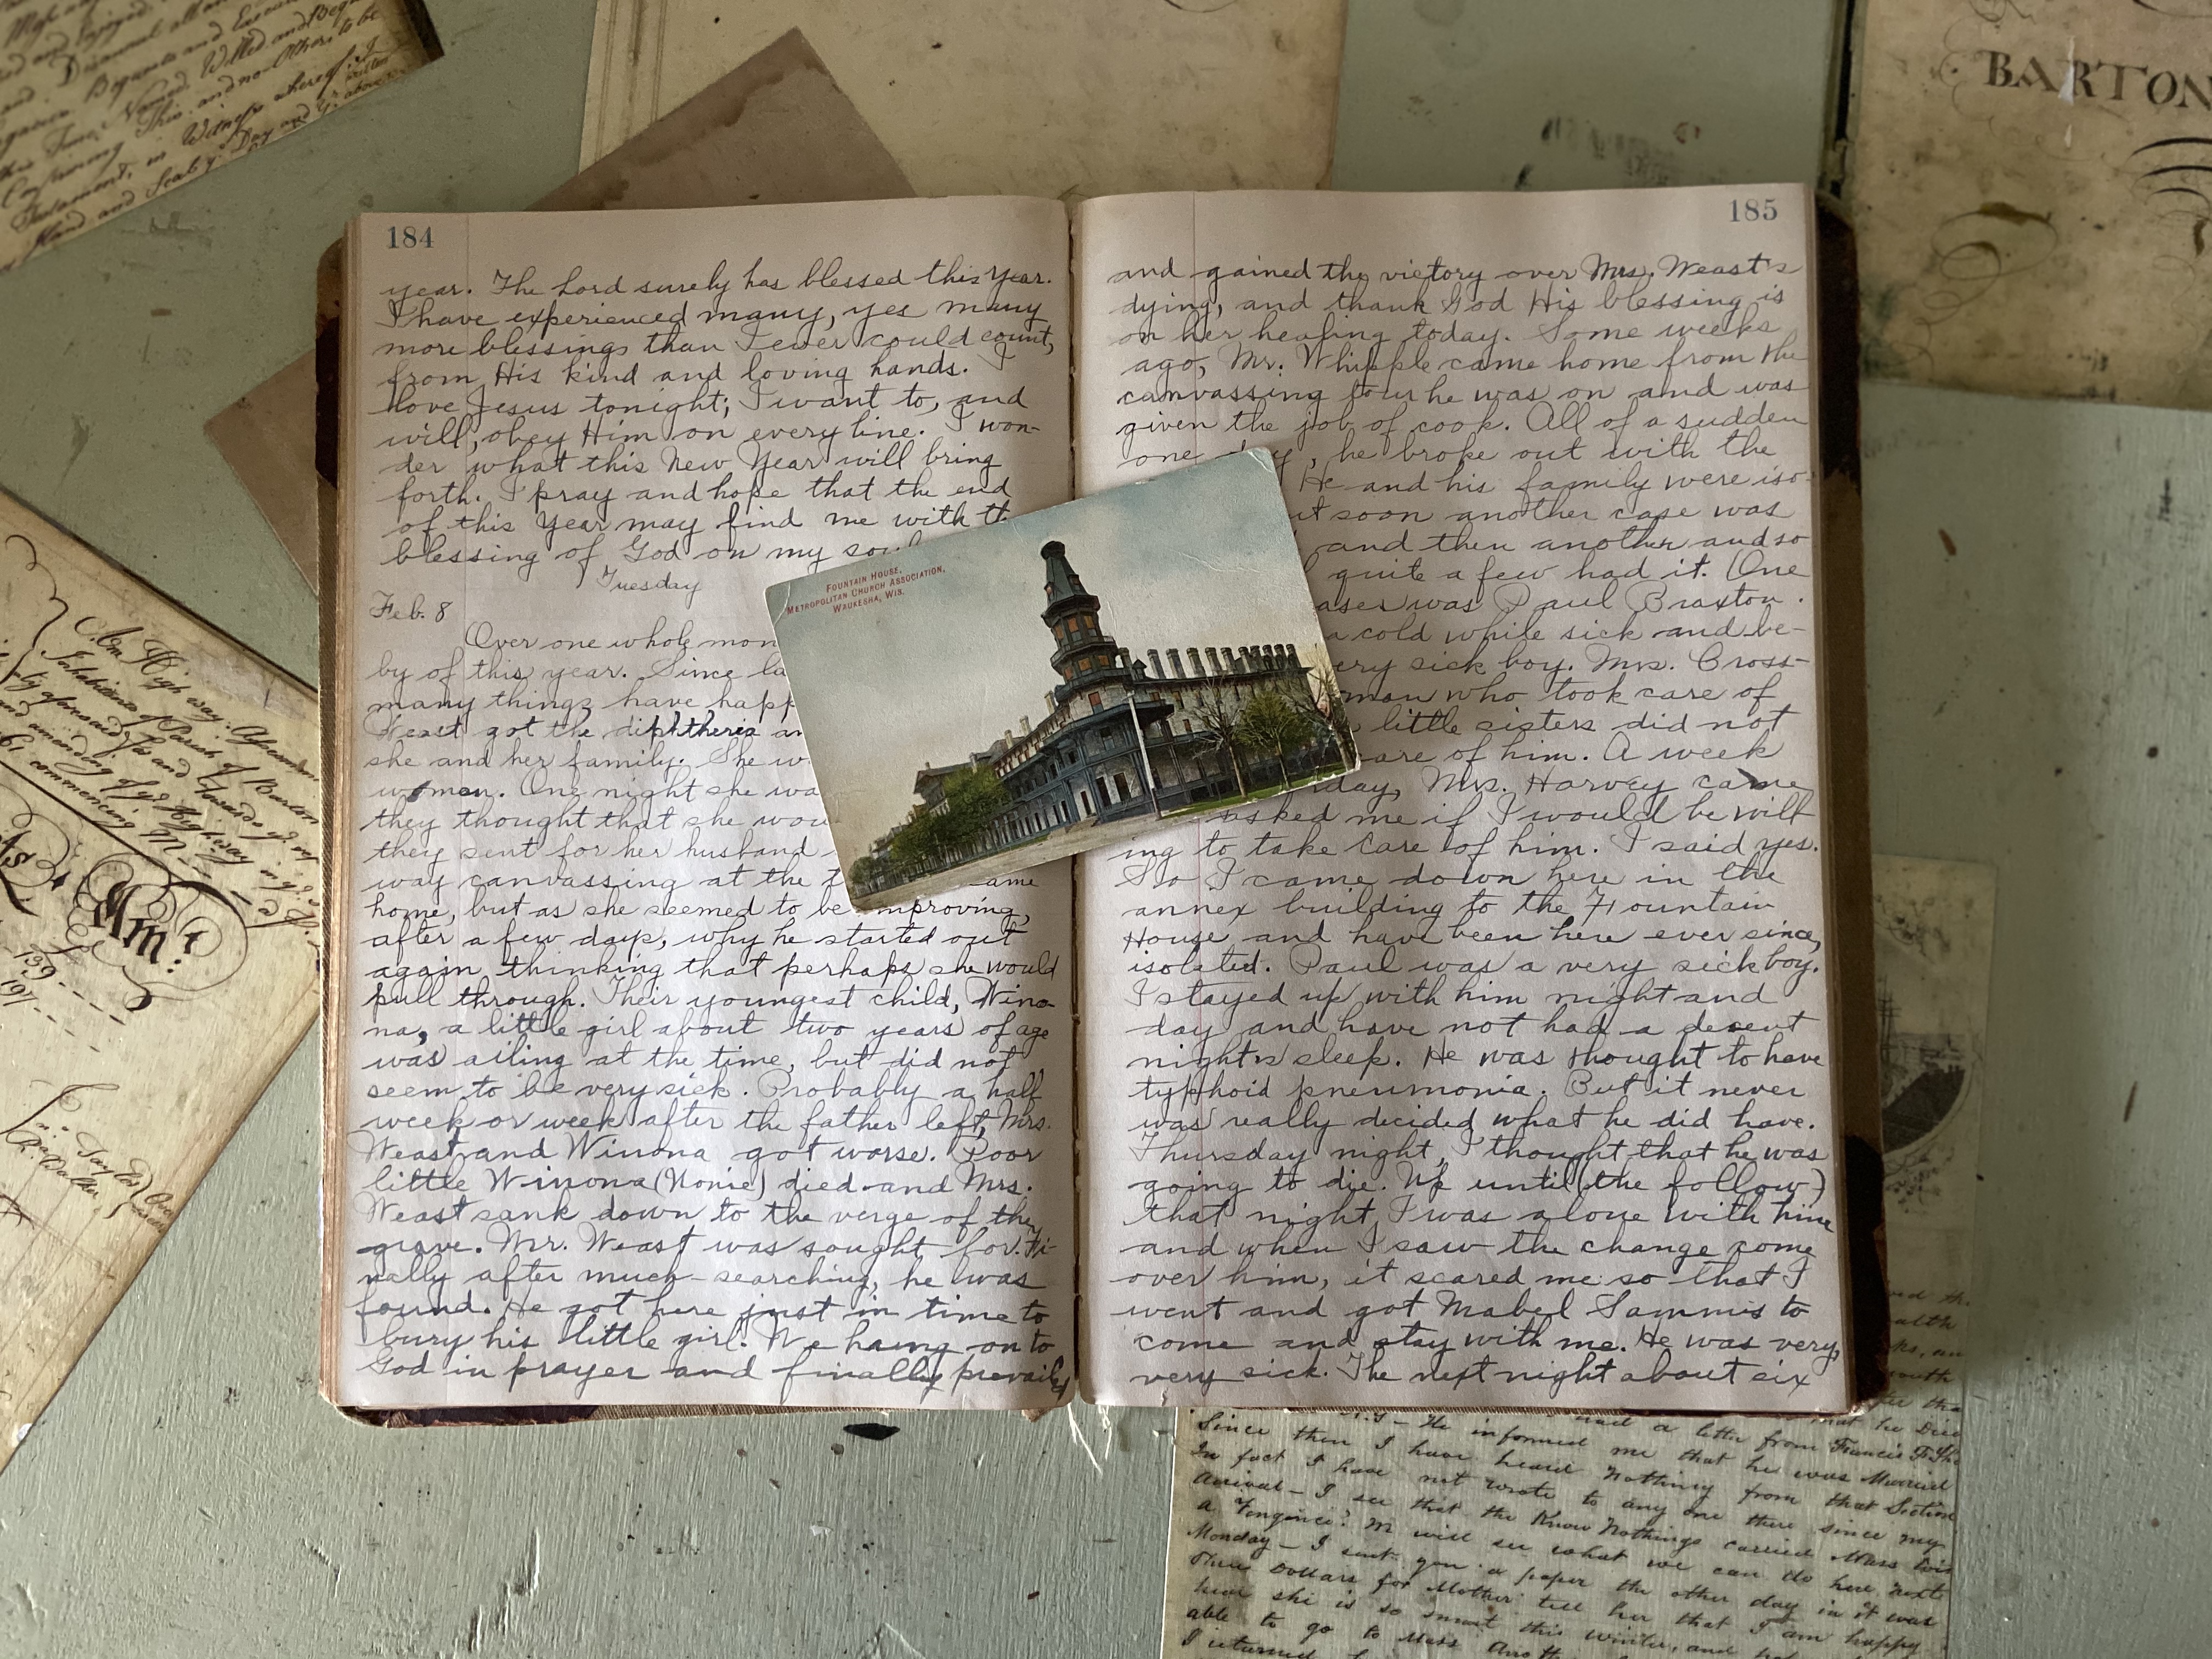 184
year. The Lord surely has blessed this year.
I have experienced many, yes many
more blessings than I ever could count,
from His kind and loving hands. I
love Jesus tonight; I want to, and
will, obey Him on every line. I won-
der what this New Year will bring
forth. I pray and hope that the end
of this Year may find me with th
blessing of God on my soul
Tuesday
Feb. 8
Over one whole mon
by of this year. Since la
many things have happ
Weast got the diphtheria an
she and her family. She w
women. One night she wa
they thought that she wou
they sent for her husband
way canvassing at the t ame
home, but as she seemed to be improving,
after a few days, why he started out
again thinking that perhaps she would
pull through. Their youngest child, Wino-
na, a little girl about two years of age
was ailing at the time, but did not
seem to be very sick. Probably a half
week or week after the father left, Mrs.
Weast and Winona got worse. Poor
little Winona (Nonie) died and Mrs.
Weast sank down to the verge of the
grave. Mr. Weast was sought for. Fi-
nally after much searching, he was
found. He got here just in time to
bury his little girl. We hung on to
God in prayer and finally prevailed
185
and gained the victory over Mrs. Weast's
dying, and thank God His blessing is
on her healing today. Some weeks
ago, Mr. Whipple came home from the
canvassing tour he was on and was
given the job of cook. All of a sudden
one day, he broke out with the
He and his family were iso-
ut soon another case was
and then another and so
quite a few had it. (One
ases was Paul Braxton.
a cold while sick and be-
ery sick boy. Mrs. Cross-
man who took care of
little sisters did not
are of him. A week
day, Mrs. Harvey came
asked me if I would be will
ing to take care of him. I said yes.
So I came down here in the
annex building to the Fountain
House and have been here ever since,
isolated. Paul was a very sick boy.
I stayed up with him night and
day and have not had a decent
night's sleep. He was thought to have
typhoid pneumonia. But it never
was really decided what he did have.
Thursday night, I thought that he was
going to die. Up until (the follow)
that night I was alone with him
and when I saw the change come
over him, it scared me so that I
went and got Mabel Sammis to
come and stay with me. He was very,
very sick. The next night about six
FOUNTAIN HOUSE,
METROPOLITAN CHURCH ASSOCIATION,
WAUKESHA, WIS.
BARTON
and Enjoyed
Bequests and
this Time, Named, Willed and
Confirming This and no Other to be
Testament, in Witness whereof I
Hand and Seal ye Day and Yr above
An High way
Inhabitants of Parish of
by aforesaid
and amending of ye Highway
commencing
Amt
139
197
Taylor
He informed me that he was Married
had a letter from Francis
Since then I have heard Nothing from that Section
In fact I have not wrote to any one there since my
Arrival – I see that the Know Nothings carried Mass
a we will see what we can do here next
Monday – I sent you a paper the other day in it was
Three Dollars for Mother tell her that I am happy
hear she is so smart this winter, and
able to go to Mass
I returned